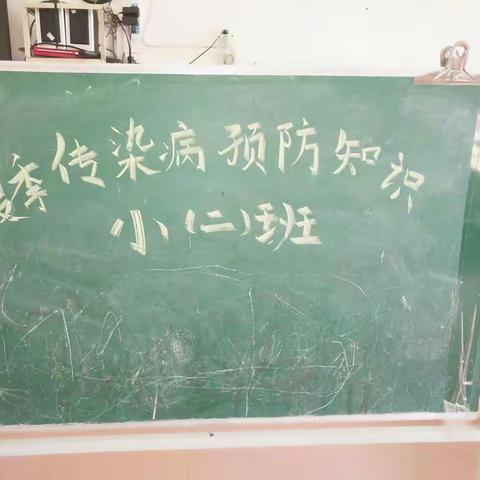 季传染病预防知识
小(二)班